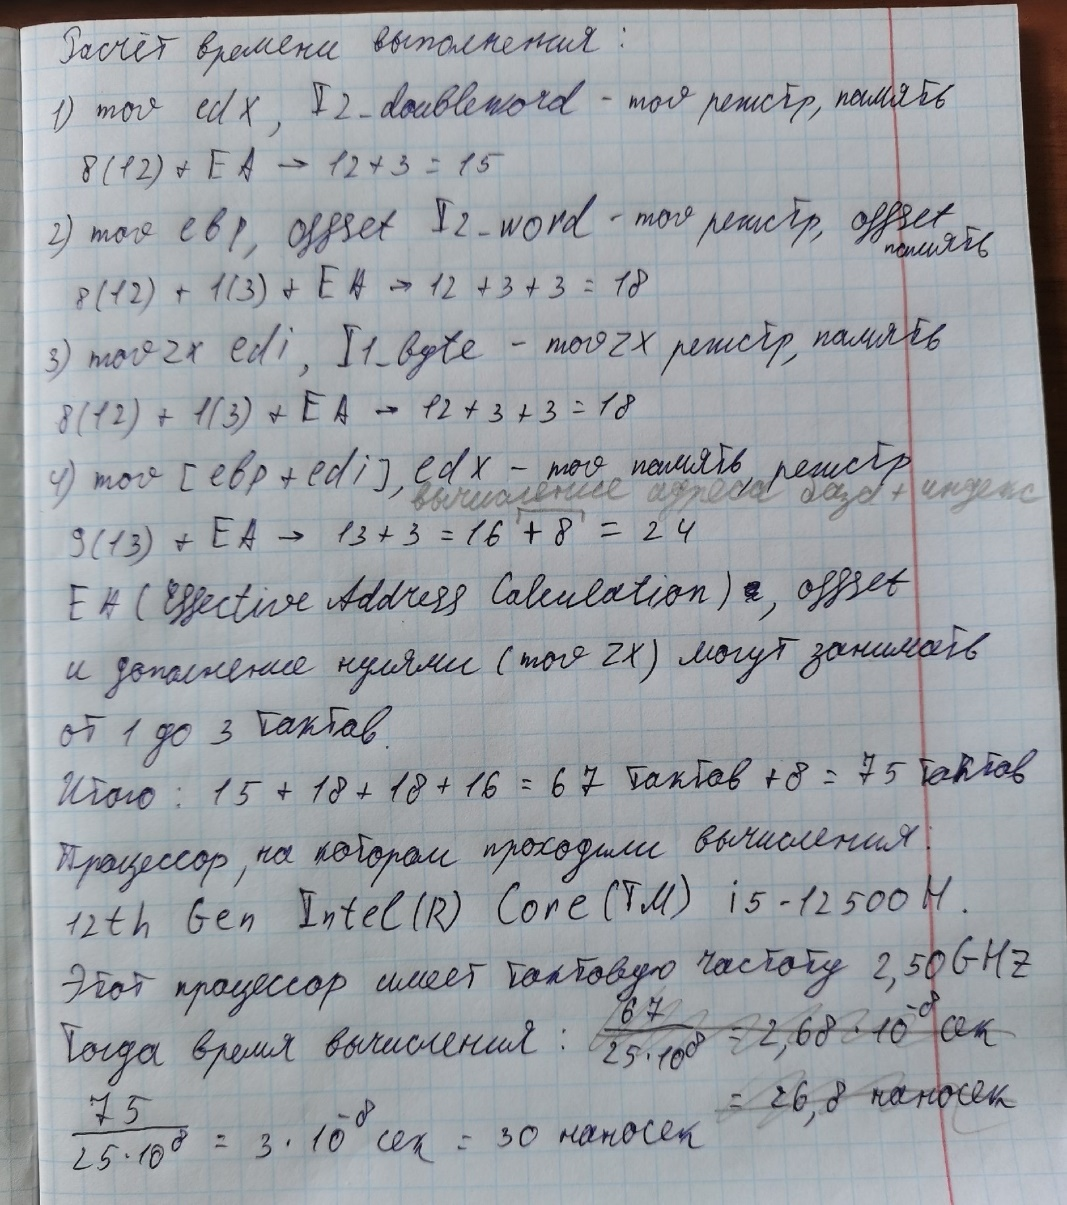 Расчёт времени выполнения:
1) mov edx, I2_doubleword - mov регистр, память
8(12) + EA → 12+3 = 15
2) mov ebp, offset I2_word - mov регистр, offset память
8(12) + 1(3) + EA → 12+3+3 = 18
3) movzx edi, I1_byte - movzx регистр, память
8(12) + 1(3) + EA → 12+3+3 = 18
4) mov [ebp+edi], edx - mov память, регистр
вычисление адреса база + индекс
9(13) + EA → 13+3 = 16 + 8 = 24
EA (Effective Address Calculation), offset
и дополнение нулями (movzx) могут занимать
от 1 до 3 тактов.
Итого: 15 + 18 + 18 + 16 = 67 тактов + 8 = 75 тактов
Процессор, на котором проходили вычисления:
12th Gen Intel(R) Core(TM) i5-12500H.
Этот процессор имеет тактовую частоту 2,50GHz
Тогда время вычисления: 67/25·10^8 = 2,68·10^-8 сек
= 26,8 наносек
75/25·10^8 = 3·10^-8 сек = 30 наносек